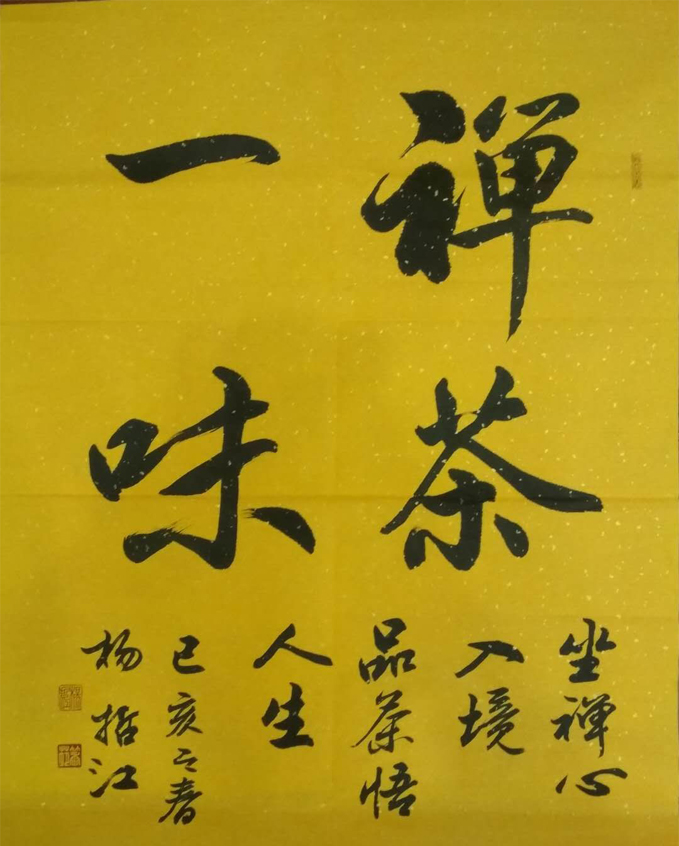 禅茶
一味
坐禅心
入境
品茶悟
人生
己亥之春
杨哲江